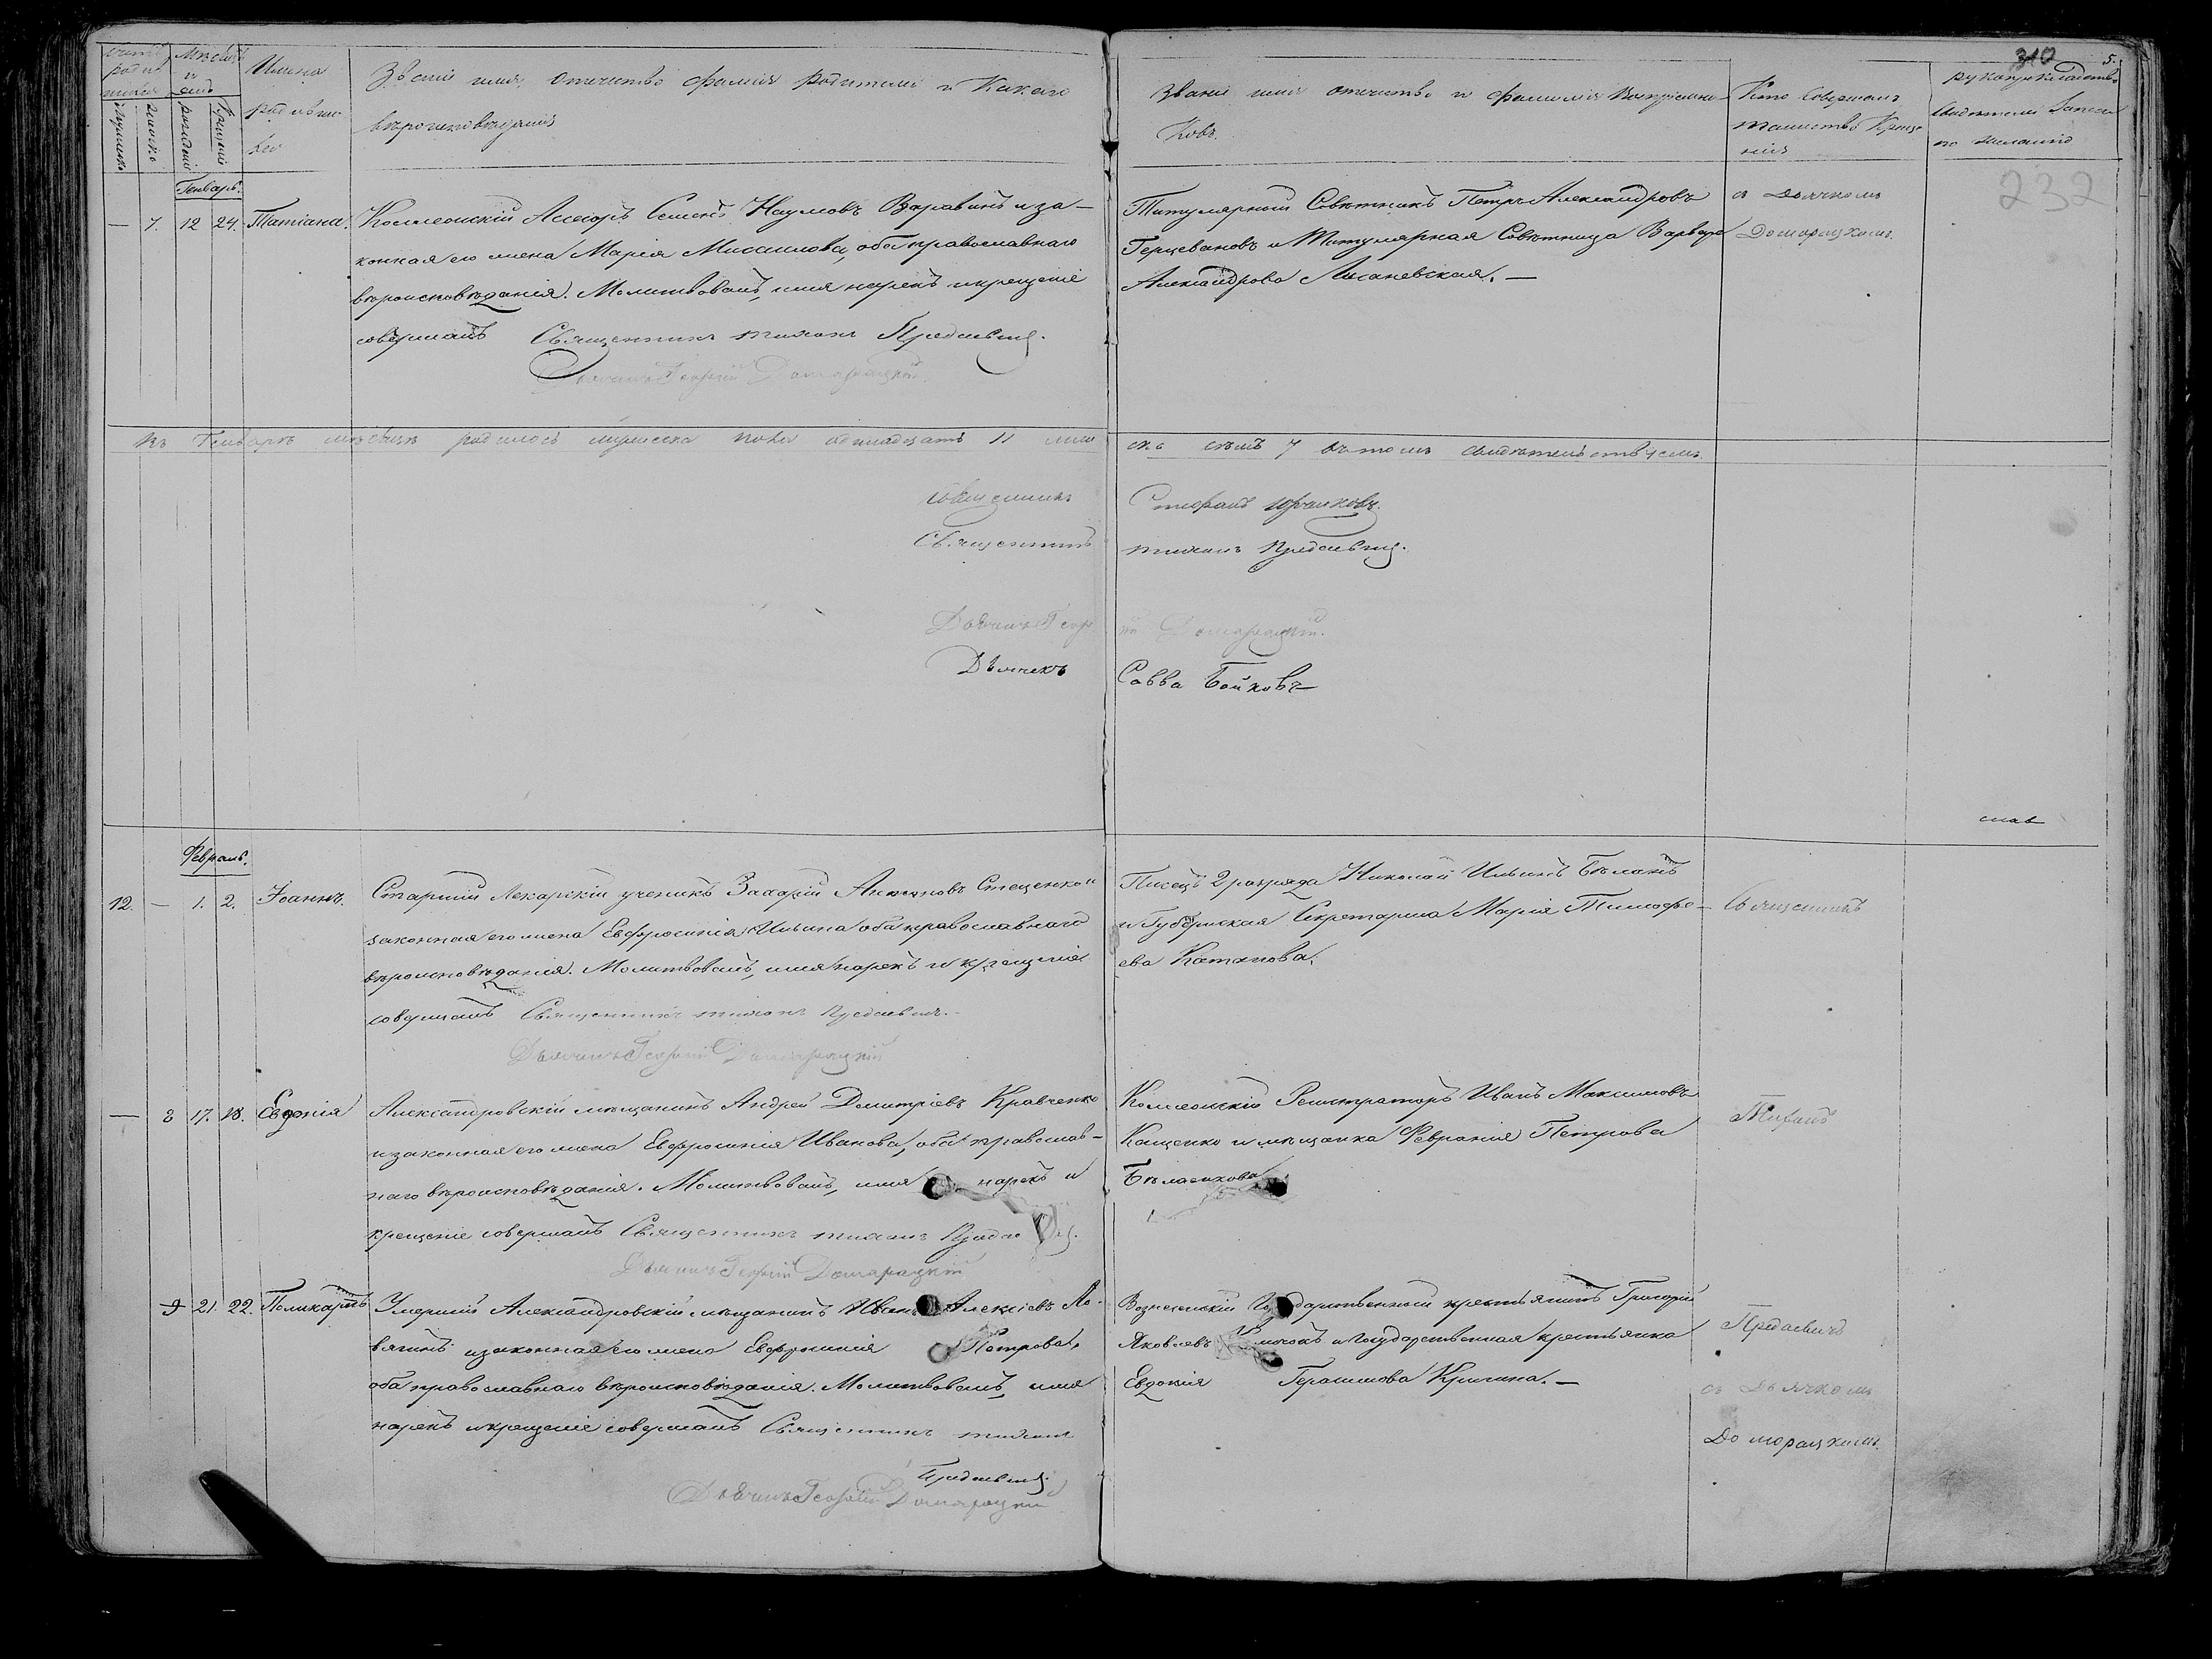 310
5.
232
Мѣсяцъ и день
Имена родивших
Званіе имя, отечество фамилія родителей и Какого
вѣроисповѣданія
Званіе имя отечество и фамилія Воспріемни-
ковъ.
Кто Совершалъ
таинство Креще
нія
Рукоприкладство
свидѣтелей записи
по желанію
Генварь.
— 7. 12 24. Татіана.
Коллежскій Ассесоръ Семенъ Наумовъ Варавинъ и за-
конная его жена Марія Михаилова, оба православнаго
вѣроисповѣданія. Молитвовалъ, имя нарекъ и крещеніе
совершалъ Священникъ Тихонъ
Дьячекъ Георгій Домарацкій
Титулярный Совѣтникъ Петръ Александровъ
Герцевановъ и Титулярная Совѣтница Варвара
Александрова Лисаневская. —
съ Дьячкомъ
Домарацкимъ.
Въ Генварѣ мѣсяцѣ родилось мужеска пола одинадцать 11 жен
ска семъ 7 въ томъ свидѣтельствуемъ
Священникъ Стефанъ Юрченковъ.
Священникъ Тихонъ
Дьячекъ Георгій Домарацкій.
Дьячекъ Савва Бойковъ
Февраль.
12. — 1. 2. Іоаннъ.
Старшій Лекарскій ученикъ Захарій Антоновъ Стеценко и
законная его жена Евфросинія Ильина оба православнаго
вѣроисповѣданія. Молитвовалъ, имя нарекъ и крещеніе
совершалъ Священникъ Тихонъ
Дьячекъ Георгій Домарацкій
Писецъ 2 разряда Николай Ильинъ Бѣланъ
и Губернская Секретарша Марія Тимофе-
ева Катанова.
Священникъ
— 8 17. 18. Евдокія
Александровскій мѣщанинъ Андрей Димитріевъ Кравченко
и законная его жена Евфросинія Иванова, оба православ-
наго вѣроисповѣданія. Молитвовалъ, имя нарекъ и
крещеніе совершалъ Священникъ Тихонъ
Дьячекъ Георгій Домарацкій
Коллежскій Регистраторъ Иванъ Максимовъ
Кащенко и мѣщанка Февронія Петрова
Тихонъ
9 21. 22. Поликарпъ
Умершій Александровскій мѣщанинъ Иванъ Алексіевъ Ло-
вягинъ и законная его жена Евфросинія Петрова,
оба православнаго вѣроисповѣданія. Молитвовалъ, имя
нарекъ и крещеніе совершалъ Священникъ Тихонъ
Дьячекъ Георгій Домарацкій
Вознесенскій Государственный крестьянинъ Григорій
Яковлевъ и Государственная крестьянка
Евдокія Герасимова Кричина. —
съ Дьячкомъ
Домарацкимъ.